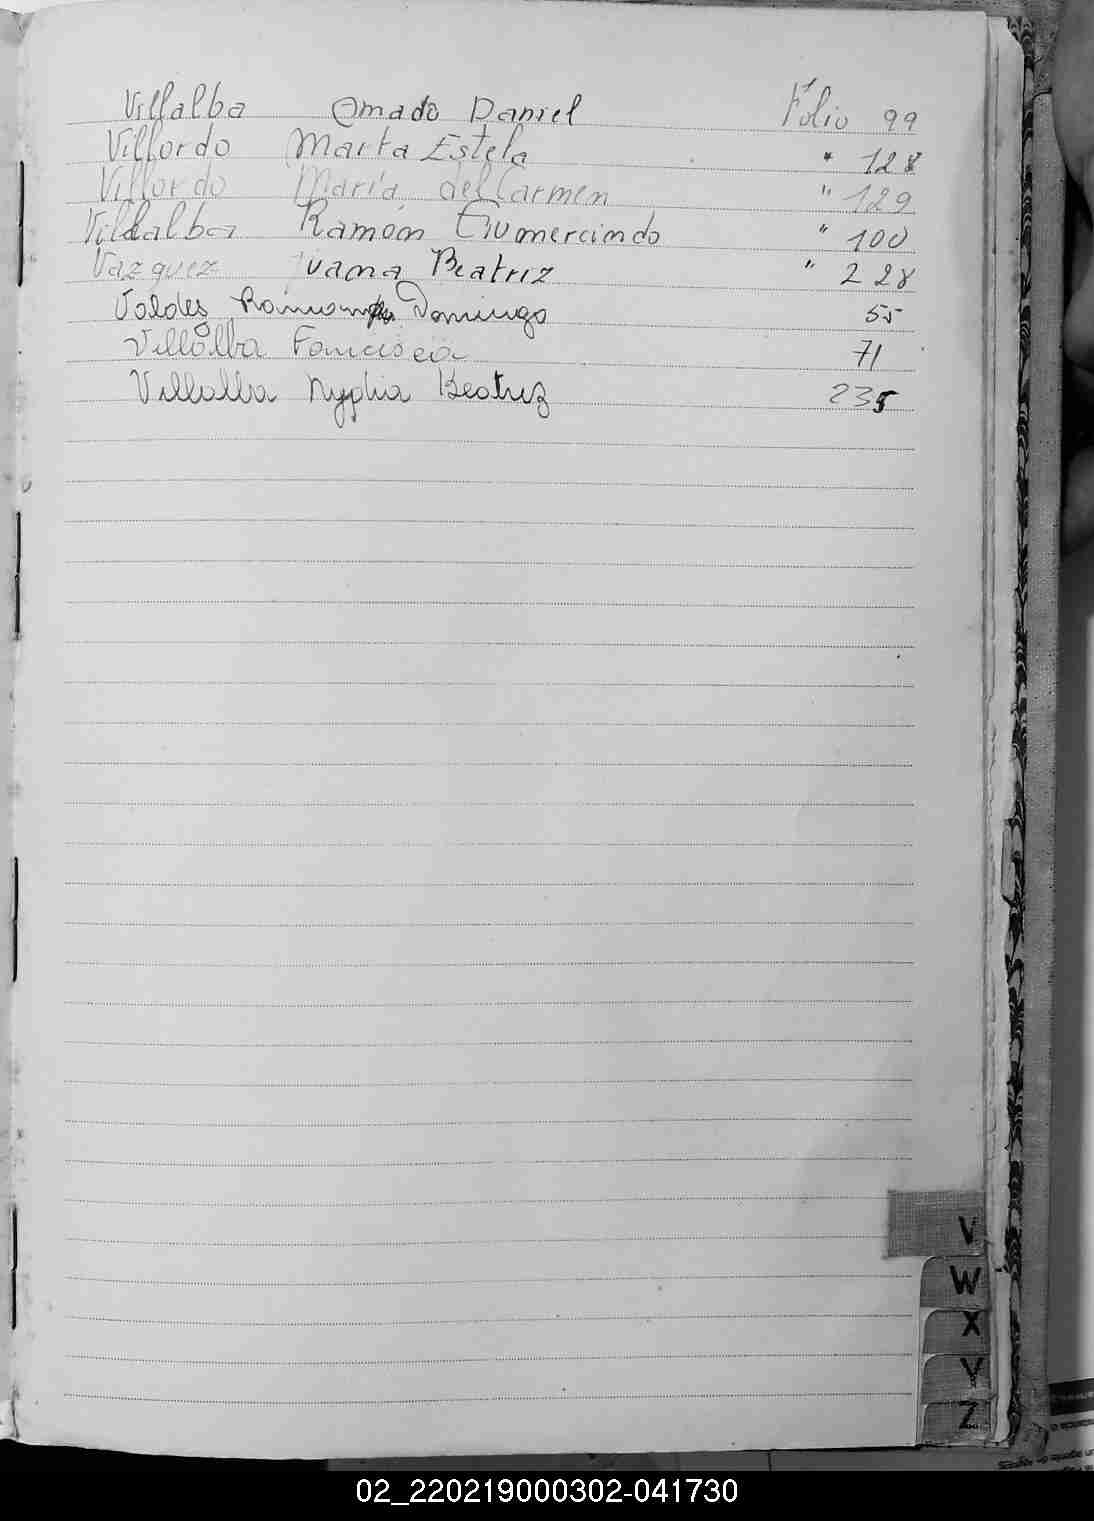 Villalba Amado Daniel Folio 99
Villordo Marta Estela " 128
Villordo María del Carmen " 129
Villalba Ramón Gumercindo " 100
Vazquez Juana Beatriz " 228
Valdes Ramon Domingo 55
Villalba Francisca 71
Villalba Nypha Beatriz 235
V
W
X
Y
Z
02_220219000302-041730